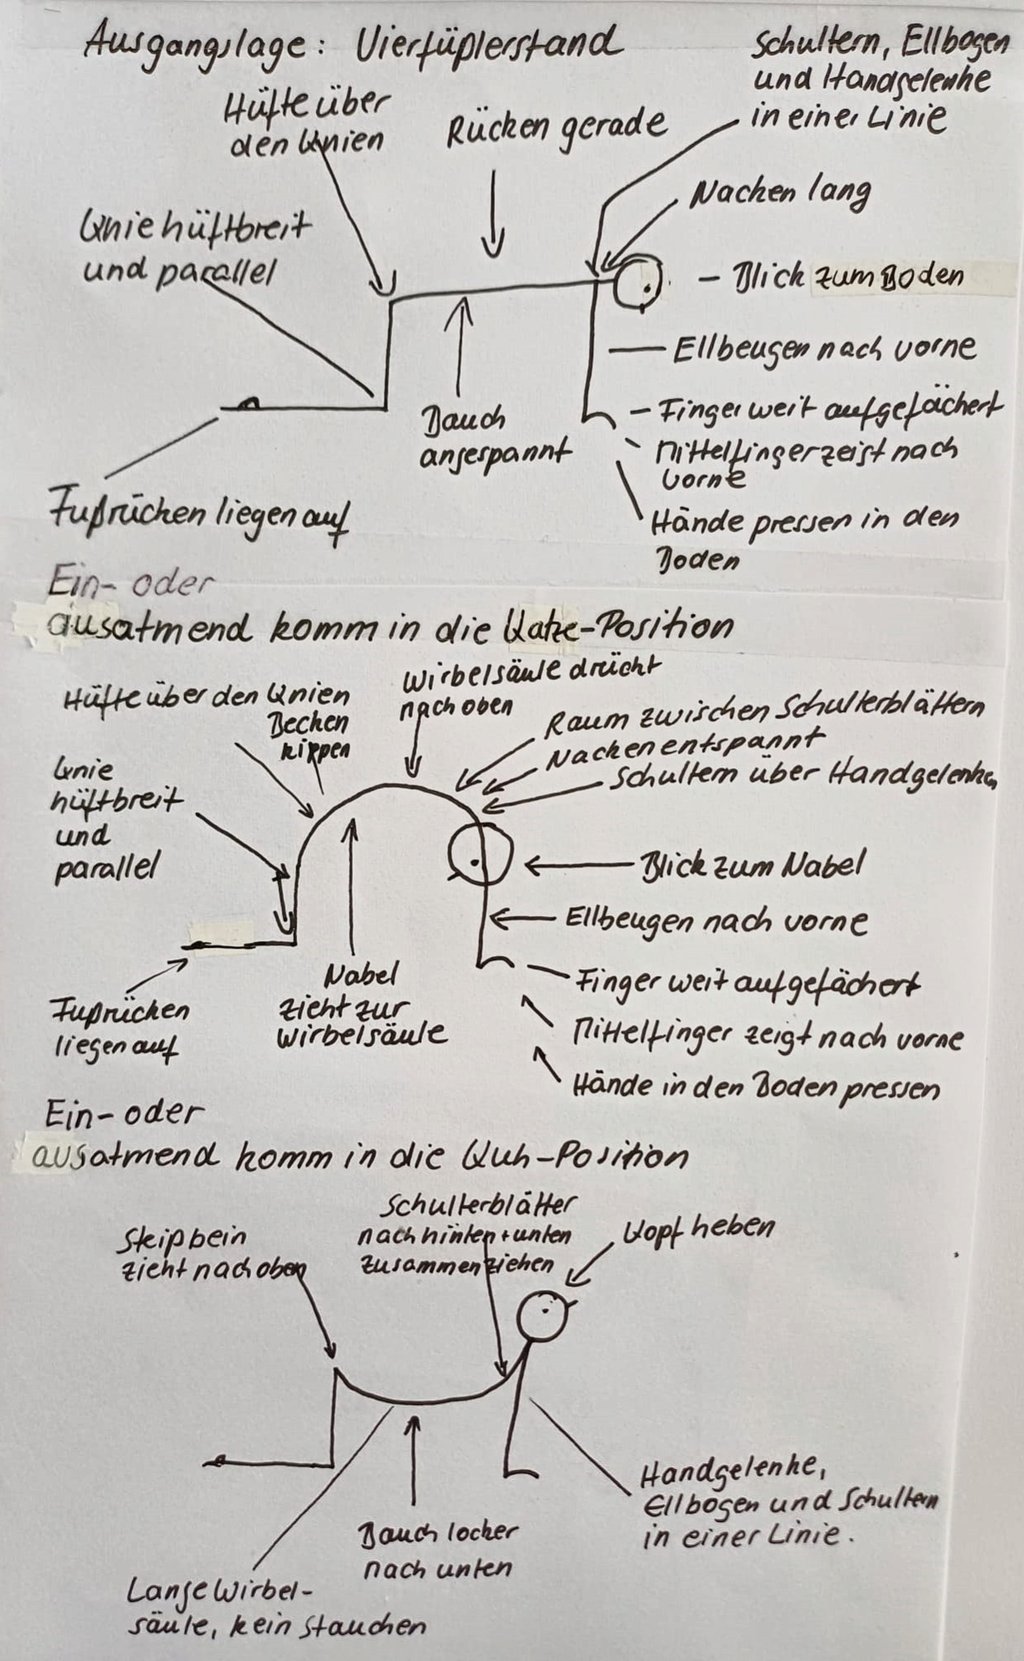 Ausgangslage: Vierfüßlerstand
Schultern, Ellbogen
und Handgelenke
in einer Linie
Hüfte über
den Knien
Rücken gerade
Nacken lang
Knie hüftbreit
und parallel
– Blick zum Boden
Ellbeugen nach vorne
Bauch
angespannt
– Finger weit aufgefächert
Mittelfinger zeigt nach
vorne
Fußrücken liegen auf
Hände pressen in den
Boden
Ein- oder
ausatmend komm in die Katze-Position
Hüfte über den Knien
Becken
kippen
Wirbelsäule drückt
nach oben
Raum zwischen Schulterblättern
Nacken entspannt
Schultern über Handgelenken
Knie
hüftbreit
und
parallel
Blick zum Nabel
Ellbeugen nach vorne
Nabel
zieht zur
Wirbelsäule
Finger weit aufgefächert
Fußrücken
liegen auf
Mittelfinger zeigt nach vorne
Hände in den Boden pressen
Ein- oder
ausatmend komm in die Kuh-Position
Steißbein
zieht nach oben
Schulterblätter
nach hinten + unten
zusammenziehen
Kopf heben
Handgelenke,
Ellbogen und Schultern
in einer Linie.
Bauch locker
nach unten
Lange Wirbel-
säule, kein Stauchen